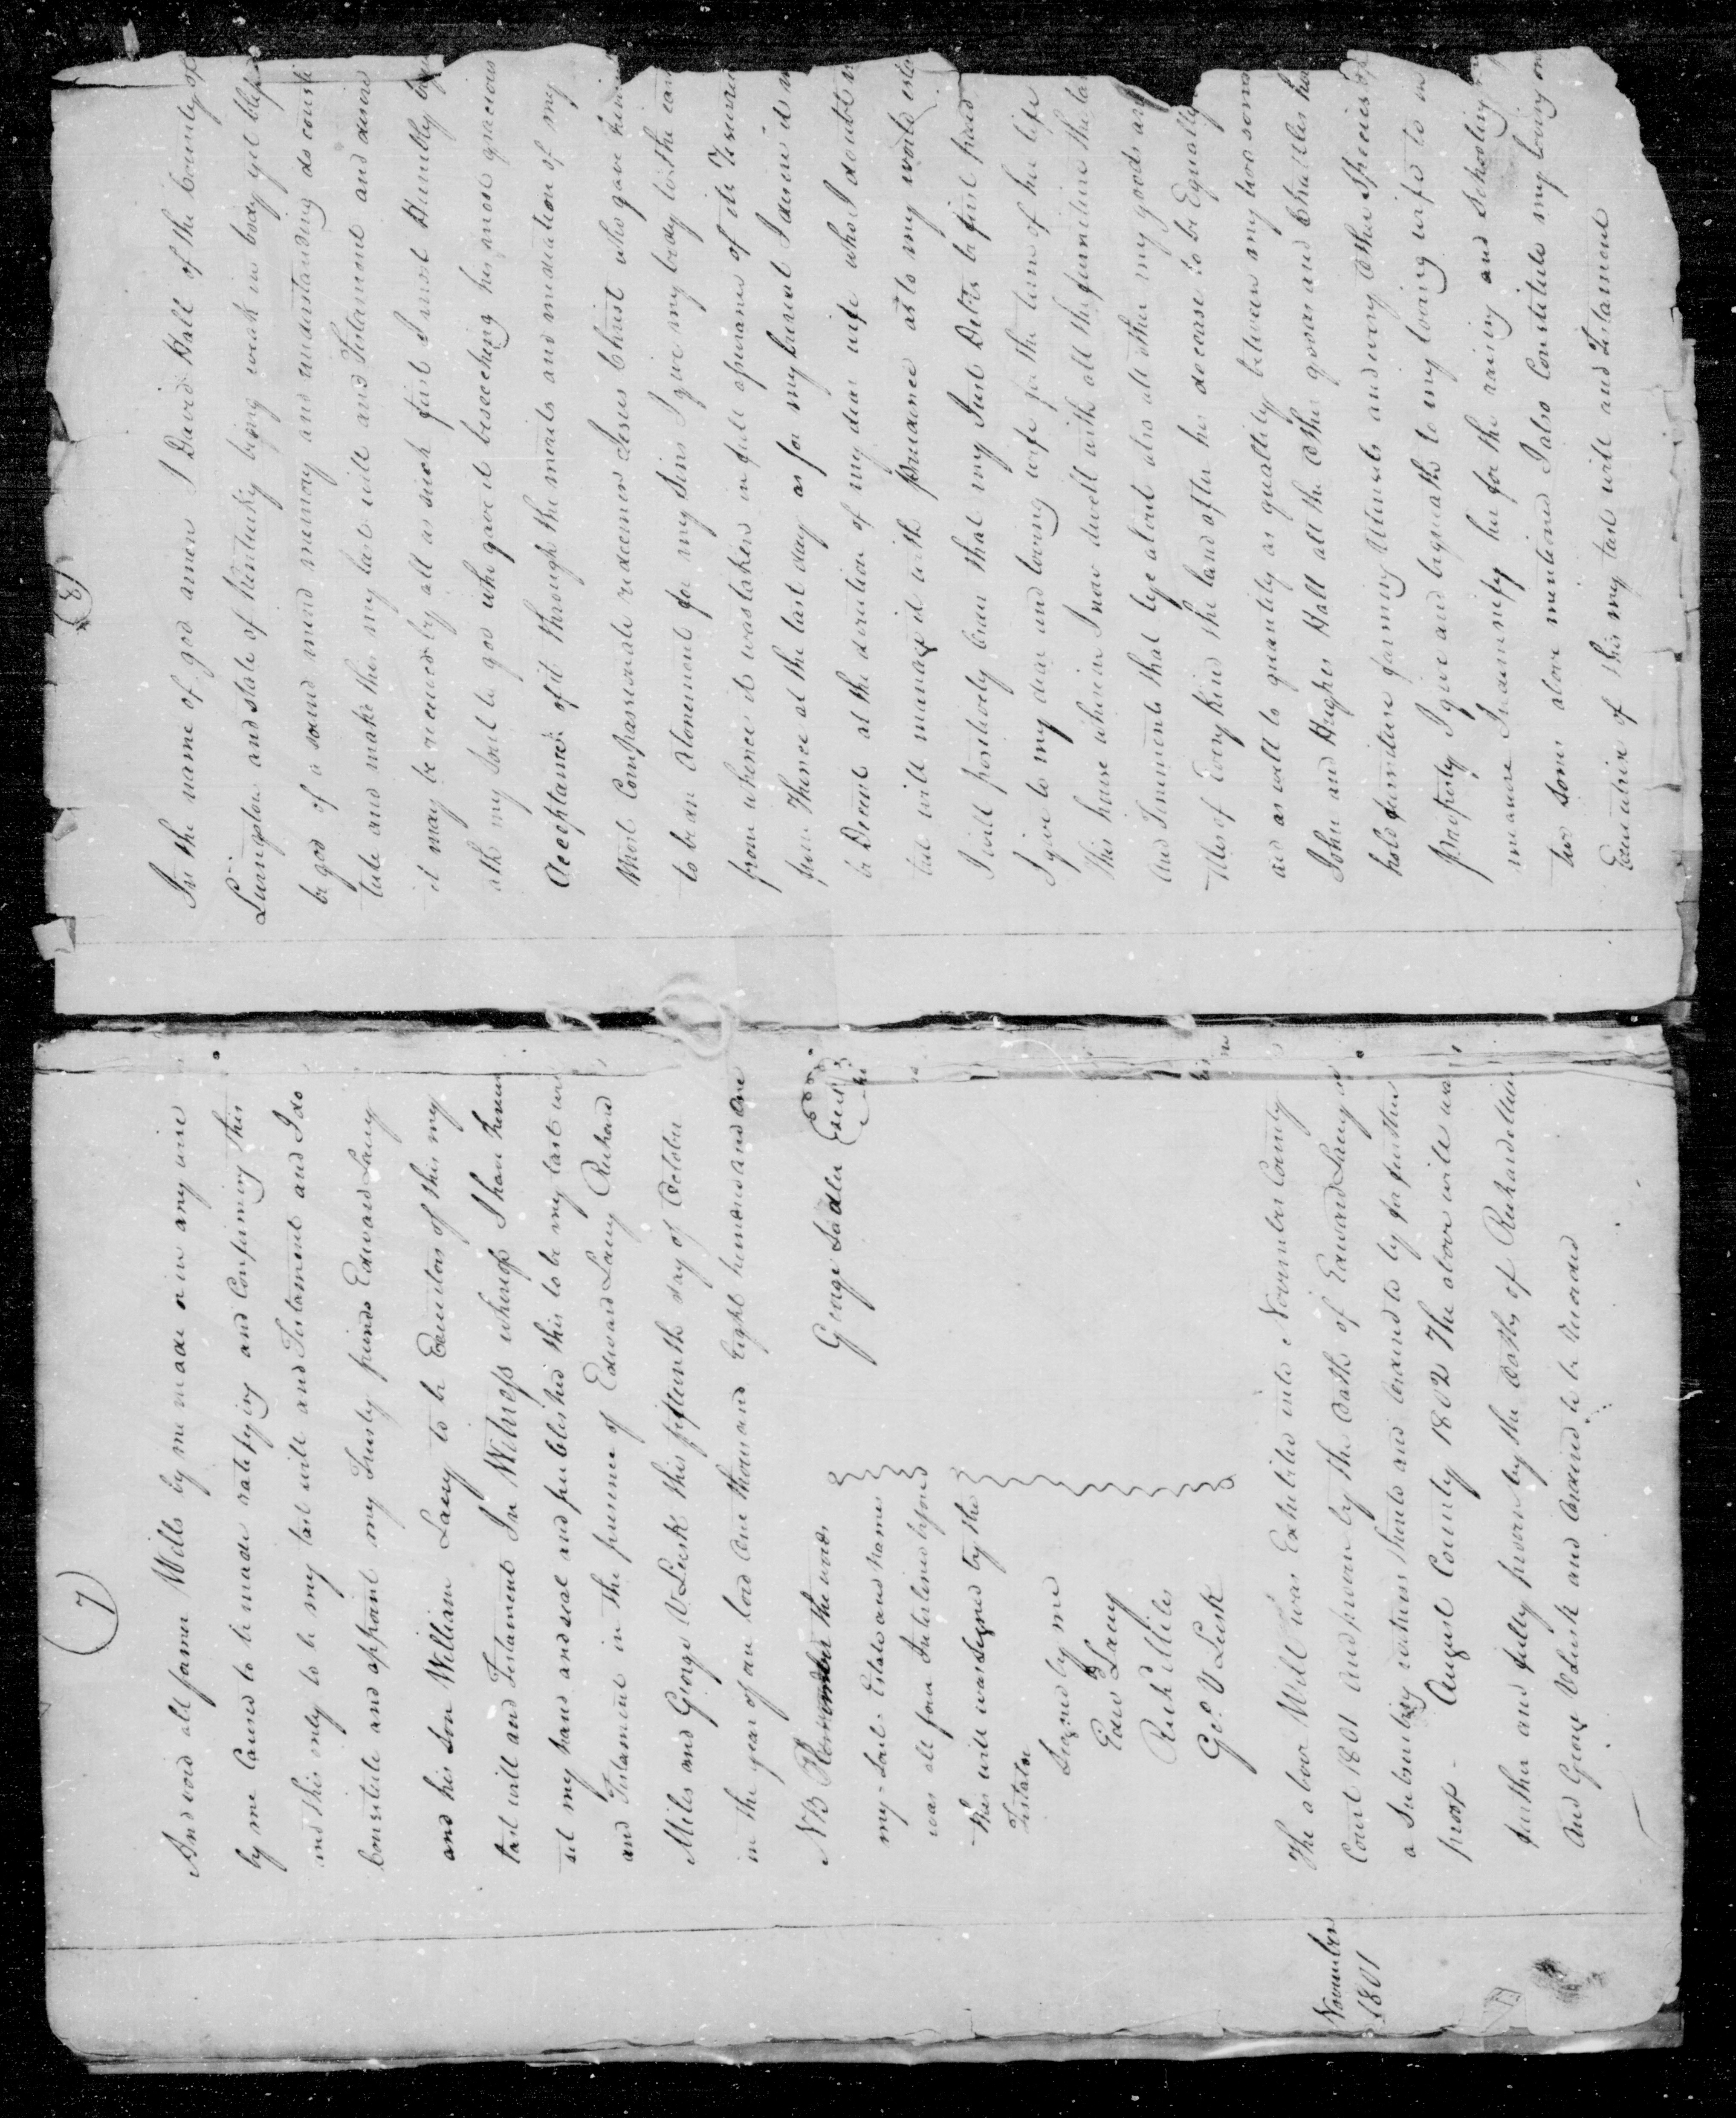 (7)
And void all former Wills by me made or in any wise
by me Caused to be made ratifying and Confirming this
and this only to be my last will and Testament and I do
Constitute and appoint my Trusty friends Edward Lacey
and his Son William Lacey to be Executors of this my
last will and Testament In Witness whereof I have hereun
set my hand and seal and published this to be my last will
and Testament in the presence of Edward Lacey Richard
Miles and George V Lusk this fifteenth day of October
in the year of our lord One thousand Eight hundred and One
George Sadler Seal
NB Remember the word
my Said Estate and name
was all four Interlined before
this will was Signed by the
Testator
Signed by me
Edw Lacey
Rich Miles
Geo. V Lusk
November
1801
The above Will was Exhibited into November County
Court 1801 And proven by the Oath of Edward Lacey
a Subscribing witness thereto and Ordered to ly for further
proof - August County 1802 The above will was
further and fully proven by the Oaths of Richard Miles
And George V Lusk and Ordered to be Recorded
(8)
In the name of god amen I David Hall of the County of
Livingston and state of Kentucky being weak in body yet bless
be god of a sound mind memory and understanding do consti
tute and make this my last will and Testament and desire
it may be received by all as such first I most Humbly
my soul to god who gave it beseeching his most gracious
Acceptance of it through the merits and mediation of my
Most Compassionate redeemer Jesus Christ who gave him
to be an Atonement for my Sins I give my body to the ear
from whence it was taken in full asurance of its Resurre
from Thence at the last day as for my burial I desire it
be Decent at the direction of my dear wife who I doubt
but will manage it with prudence as to my world esta
I will positively Order that my Just Debts be first paid
I give to my dear and loving wife for the term of her life
This house wherein I now dwell with all the furniture the lan
And Tenements that lye about also all other my goods
of Every kind the land after her decease to be Equally
as well to quantity as quallity between my two sons
John and Hughes Hall all the Other goods and Chattles
hold furniture farming Utensils and every Other Species of
property I give and bequeath to my loving wife to in
manner Indemnify her for the raising and schooling
two sons above mentioned I also Constitute my loving
Executrix of this my last will and Testament